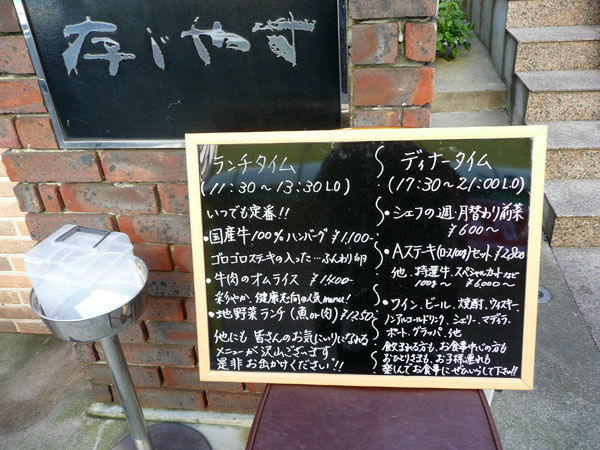 存じやす
ランチタイム
(11:30～13:30LO)
いつでも定番!!
・国産牛100%ハンバーグ ¥1,100-
ゴロゴロステキの入った…ふんわり
・牛肉のオムライス ¥1400-
彩りやか、健康志向の人気menu!
・地野菜ランチ(魚or肉) ¥1,250-
他にも皆さんのお気にいりになれる
メニューが沢山ございます
是非お出かけください!!
ディナータイム
(17:30～21:00LO)
・シェフの週・月替わり前菜
¥600～
・Aステキ(ロース100g)セット ¥2,800
他、特選牛、スペシャルカットなど
100g～ ¥6,000～
・ワイン、ビール、焼酎、ウイスキー、
ノンアルコールドリンク、シェリー、マディラ、
ポート、グラッパ、他
飲まれる方も、お食事中心の方も
おひとりさまも、お子様連れも
楽しんでお食事にぜひいらして下さい!!